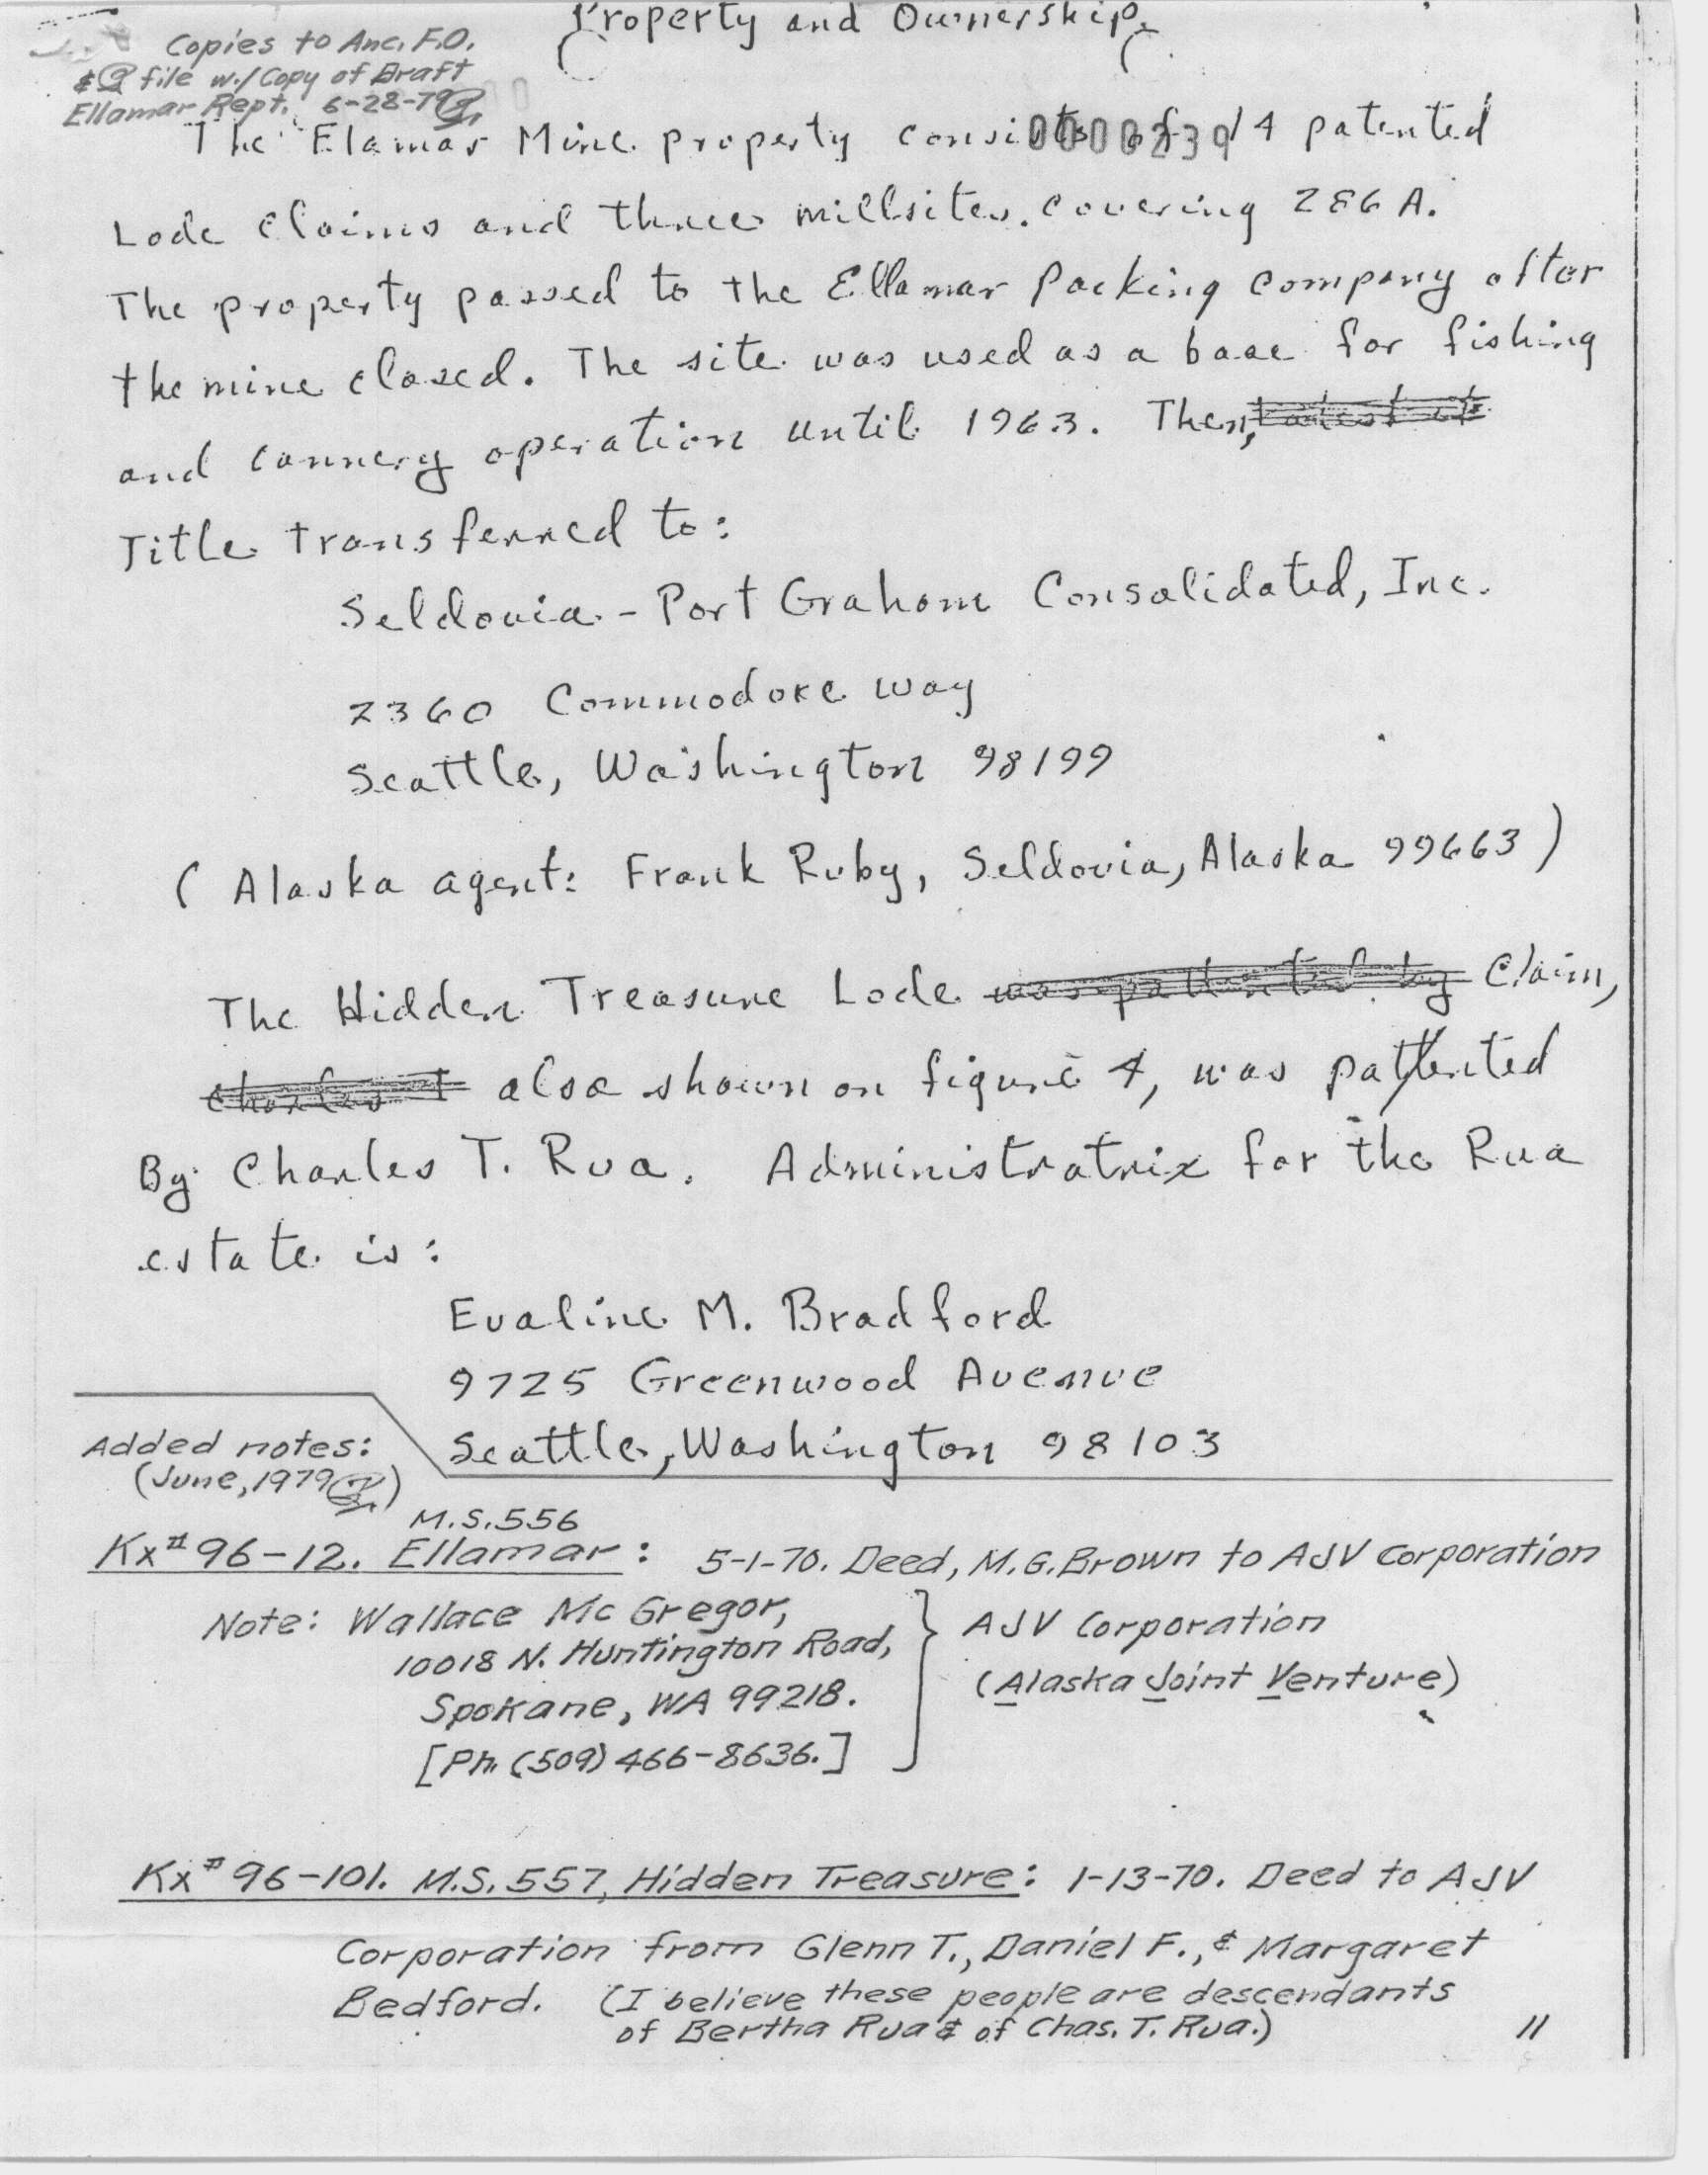 Property and Ownership
Copies to Anc. F.O.
& file w./Copy of Draft
Ellamar Rept. 6-28-79
The Elamar Mine property consists of 14 patented
0000239
Lode Claims and three millsites. covering 286 A.
The property passed to the Ellamar Packing Company after
the mine closed. The site was used as a base for fishing
and cannery operation until 1963. Then,
Title transferred to:
Seldovia - Port Graham Consolidated, Inc.
2360 Commodore Way
Seattle, Washington 98199
( Alaska agent: Frank Ruby, Seldovia, Alaska 99663 )
The Hidden Treasure Lode was patented by Claim,
Charles T also shown on figure 4, was pattented
By Charles T. Rua. Administratrix for the Rua
estate is:
Evaline M. Bradford
9725 Greenwood Avenue
Seattle, Washington 98103
Added notes:
(June, 1979)
M.S. 556
Kx# 96-12. Ellamar: 5-1-70. Deed, M.G. Brown to AJV Corporation
Note: Wallace Mc Gregor,
10018 N. Huntington Road,
Spokane, WA 99218.
[Ph. (509) 466-8636.]
AJV Corporation
(Alaska Joint Venture)
Kx# 96-101. M.S. 557, Hidden Treasure: 1-13-70. Deed to AJV
Corporation from Glenn T., Daniel F., & Margaret
Bedford. (I believe these people are descendants
of Bertha Rua & of Chas. T. Rua.)
11